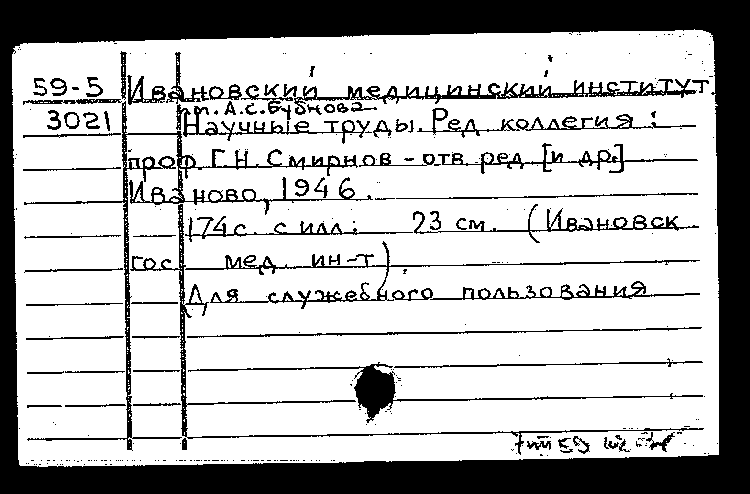 59-5 Ивановский медицинский институт.
им. А.С. Бубнова
3021 Научные труды. Ред коллегия:
проф Г.Н. Смирнов - отв. ред [и др.]
Иваново, 1946.
174 с. с илл; 23 см. (Ивановск
гос мед. ин-т).
(Для служебного пользования